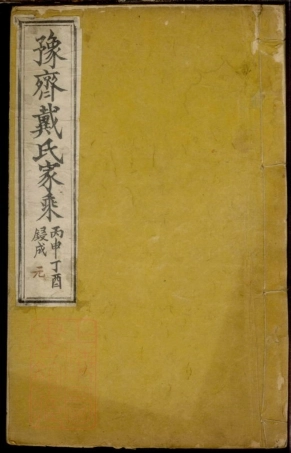 豫齋戴氏家乘
丙申丁酉
鋟成
元